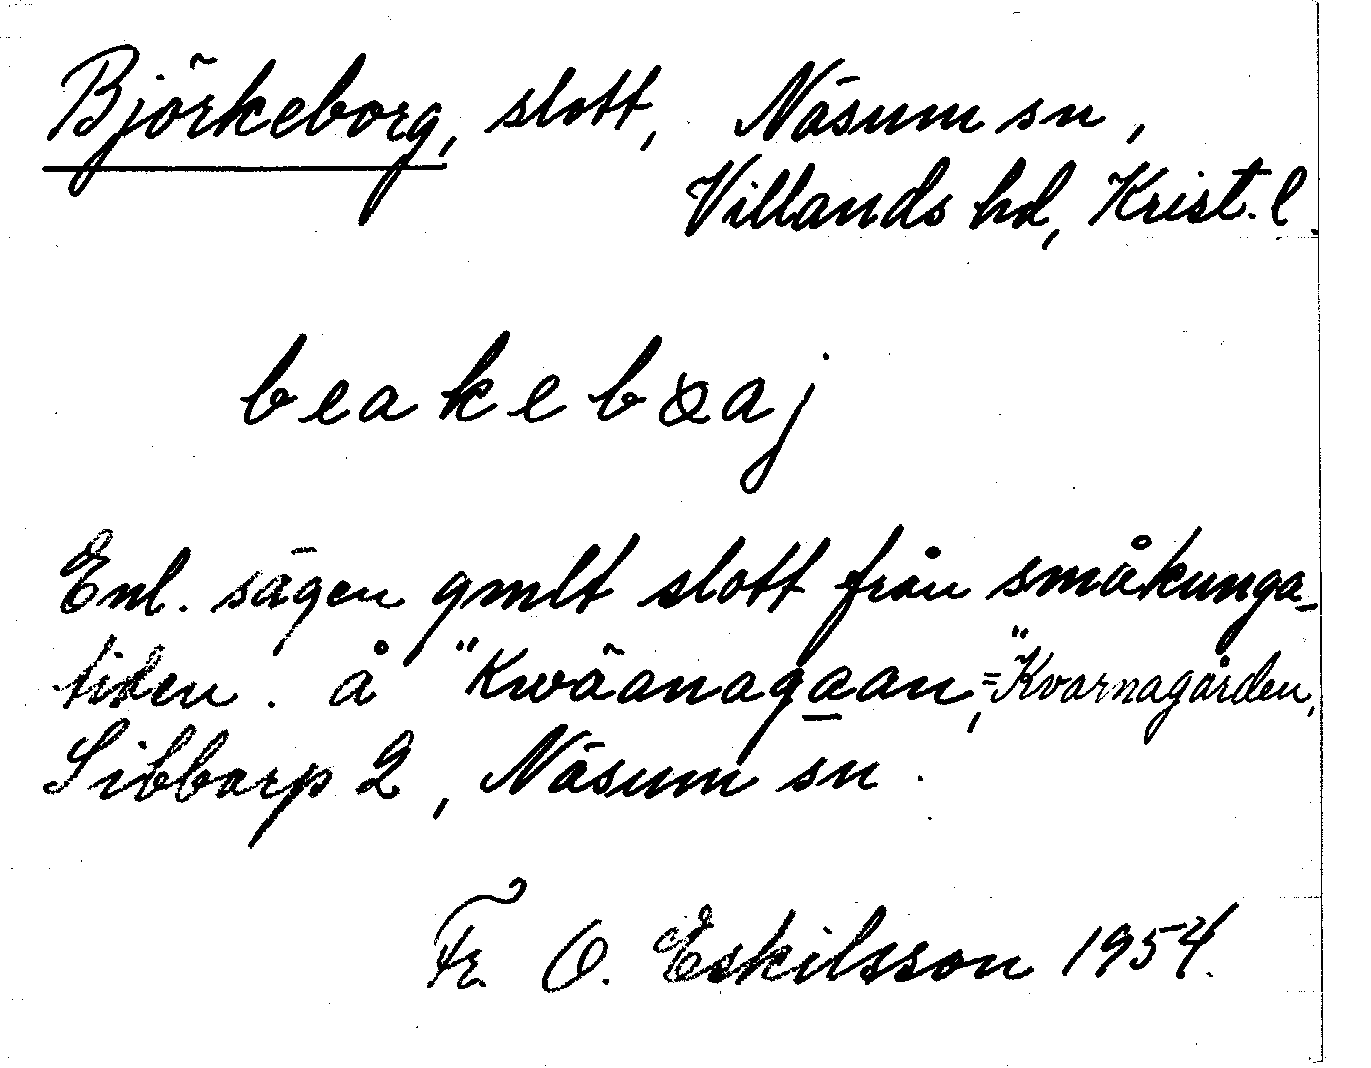 Björkeborg, slott, Näsum sn,
Villands hd, Krist. l.
beakeboaj
Enl. sägen gmlt slott från småkunga-
tiden. å "Kwäanagaan," = Kvarnagården,
Sibbarp 2, Näsum sn.
Fr. O. Eskilsson 1954.